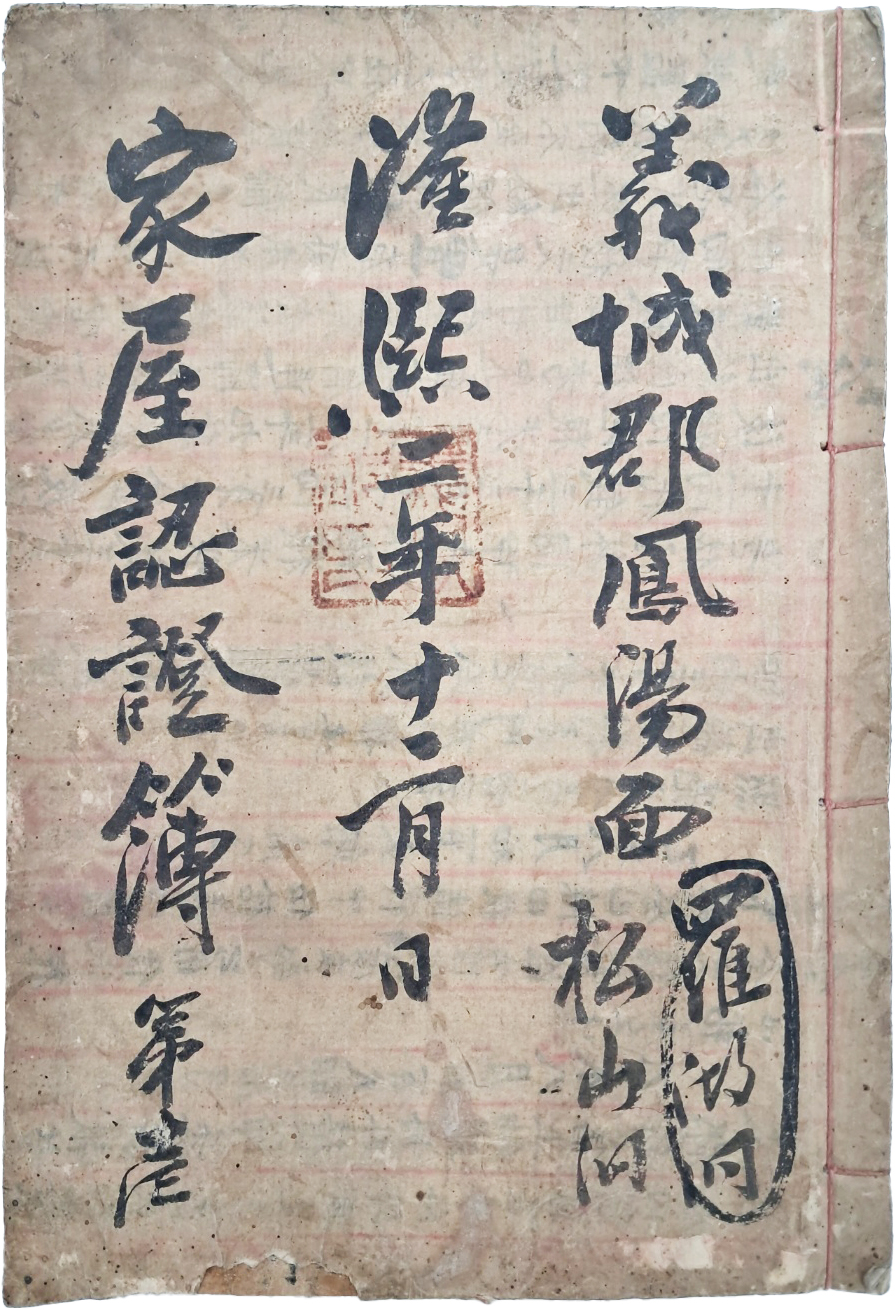 義城郡鳳陽面 松山洞
羅湖洞
隆熙二年十二月 日
家屋認證簿 第壱